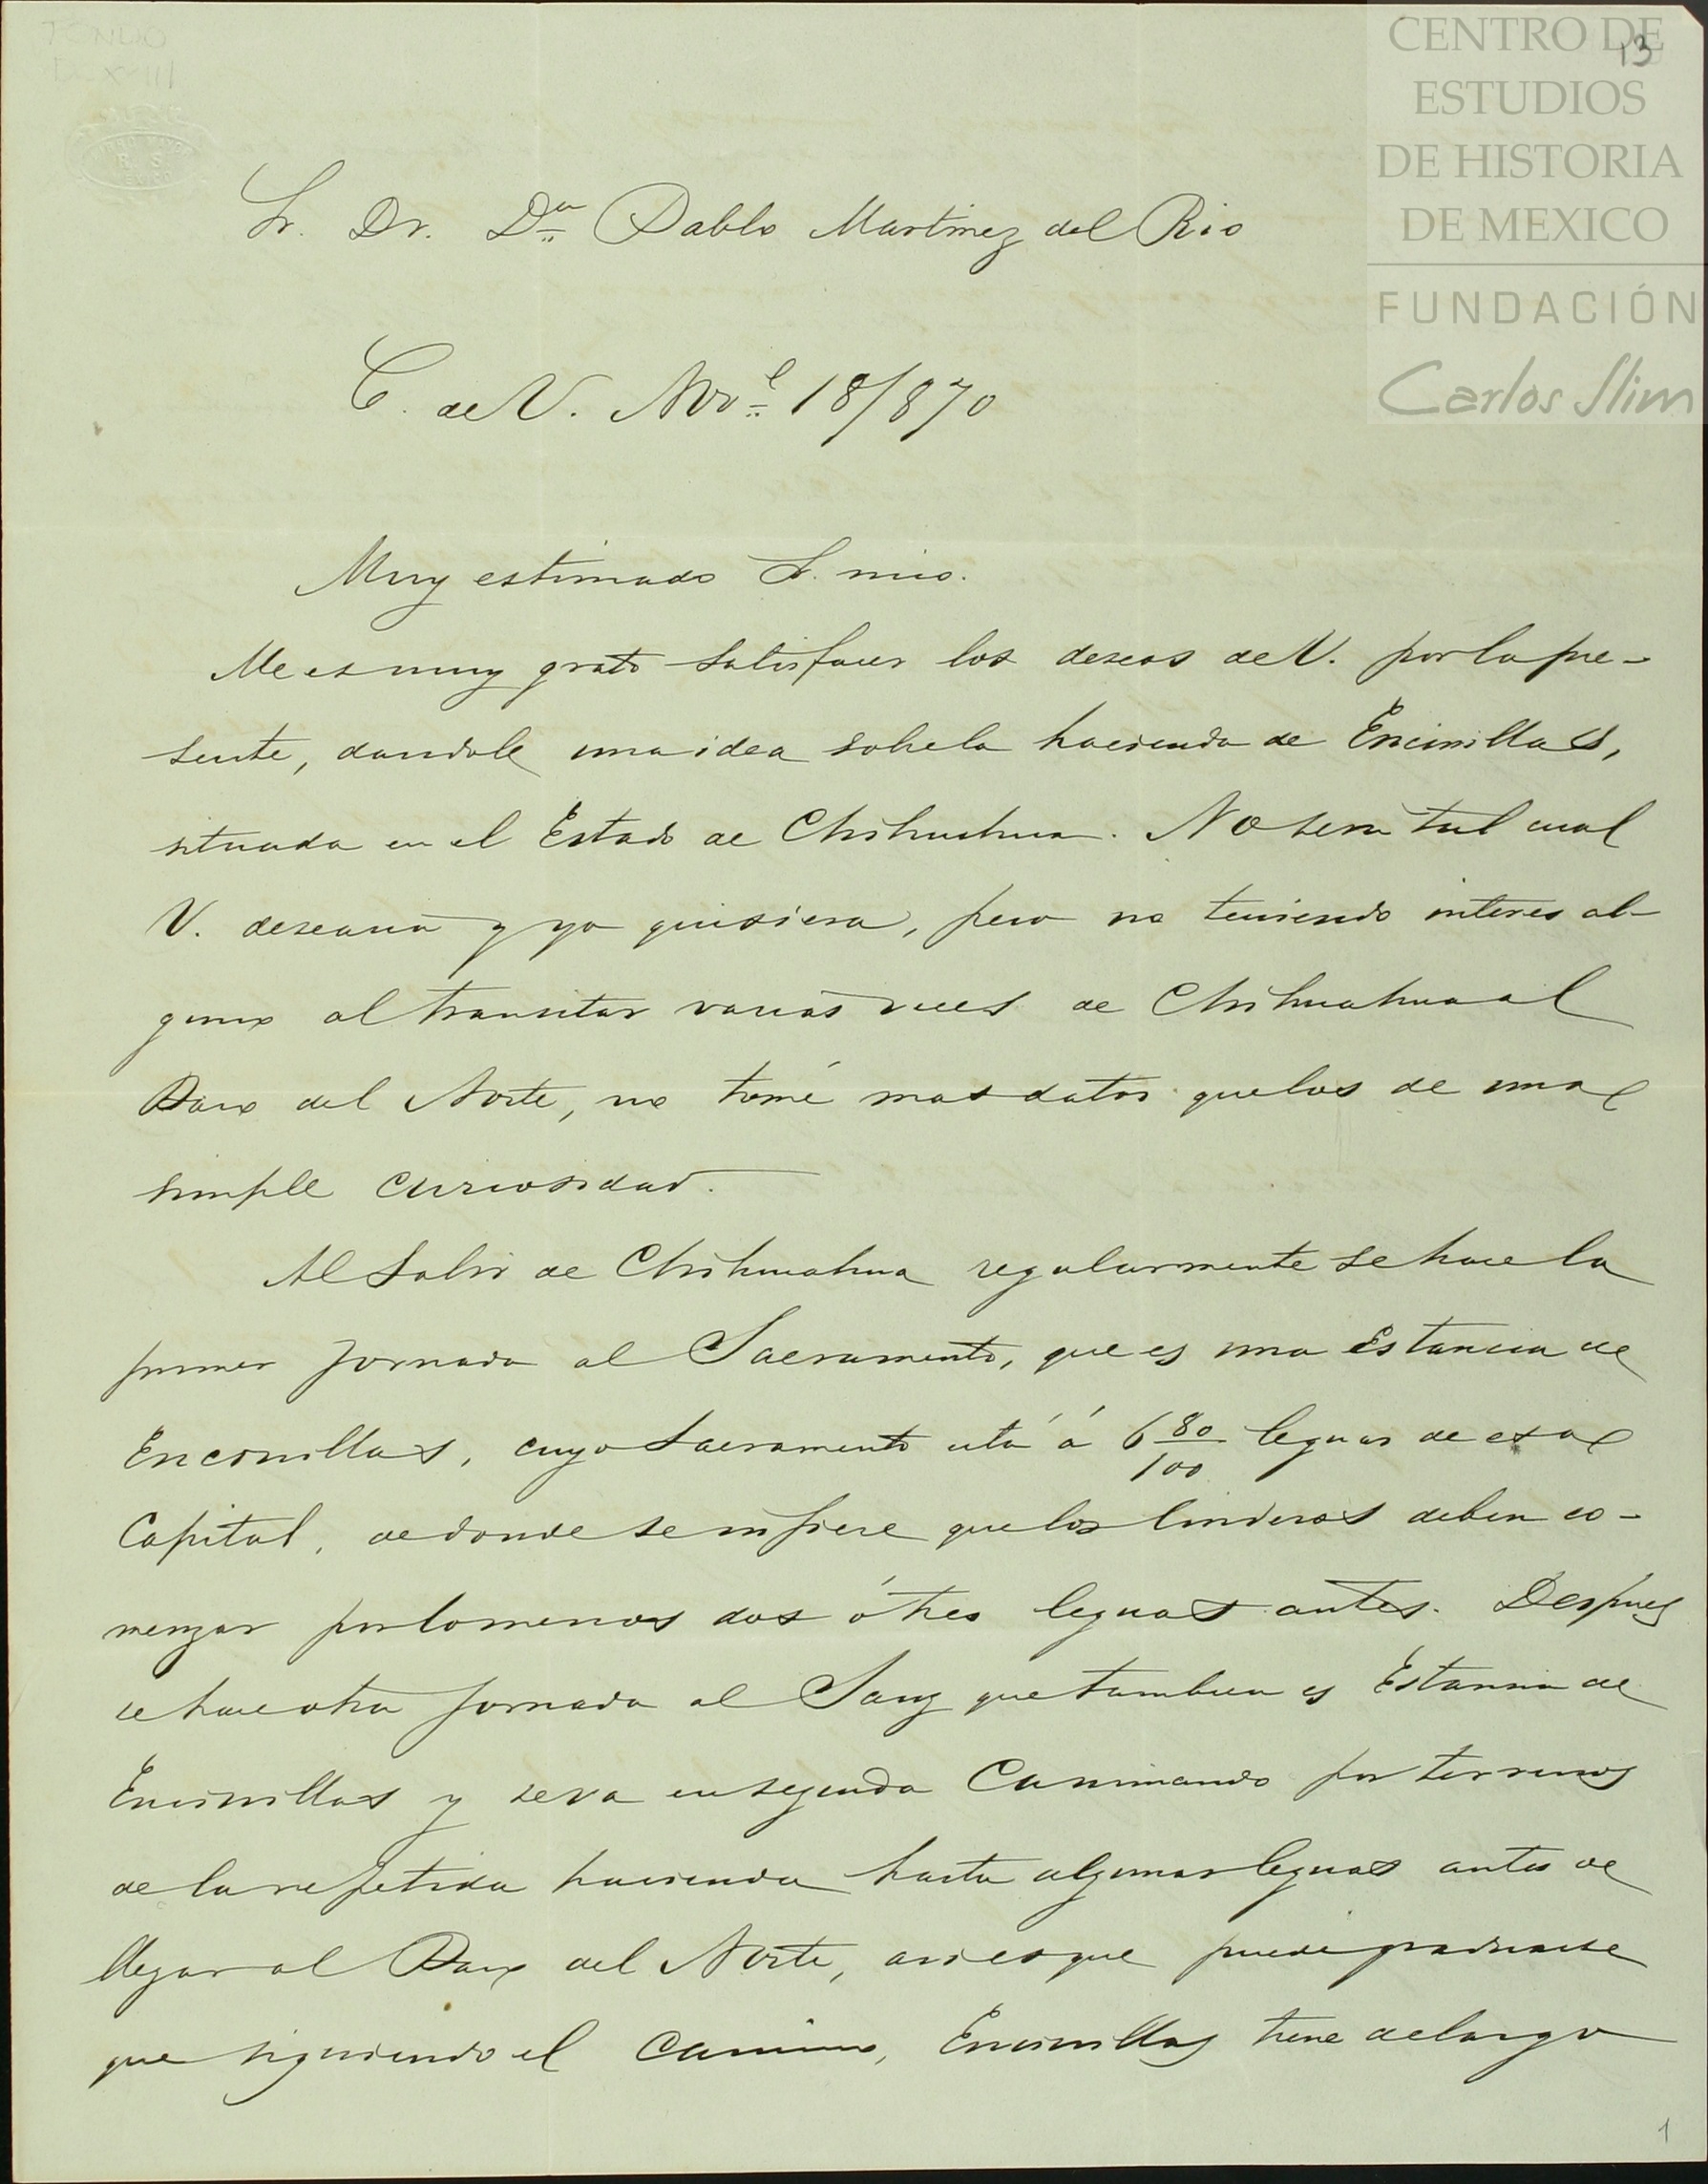 CENTRO DE
ESTUDIOS
DE HISTORIA
DE MEXICO
FUNDACIÓN
Carlos Slim
13
Sr. Dr. Dn Pablo Martinez del Rio
C. de V. Nove 18/870
Muy estimado Sr. mio.
Me es muy grato satisfacer los deseos de V. por la pre-
sente, dandole una idea sobre la hacienda de Encinillas,
situada en el Estado de Chihuahua. No sera tal cual
V. desearia y yo quisiera, pero no teniendo interes al-
guno al transitar varias veces de Chihuahua al
Paso del Norte, no tomé mas datos que los de una
simple curiosidad.
Al salir de Chihuahua regularmente se hace la
primer jornada al Sacramento, que es una Estancia de
Encinillas, cuyo Sacramento está á 6 80/100 leguas de esa
Capital, de donde se infiere que los linderos deben co-
menzar por lo menos dos ó tres leguas antes. Despues
se hace otra jornada al Sauz que tambien es Estancia de
Encinillas y se va en seguida caminando por terrenos
de la repetida hacienda hasta algunas leguas antes de
llegar al Paso del Norte, asi es que puede graduarse
que siguiendo el camino, Encinillas tiene de largo
1